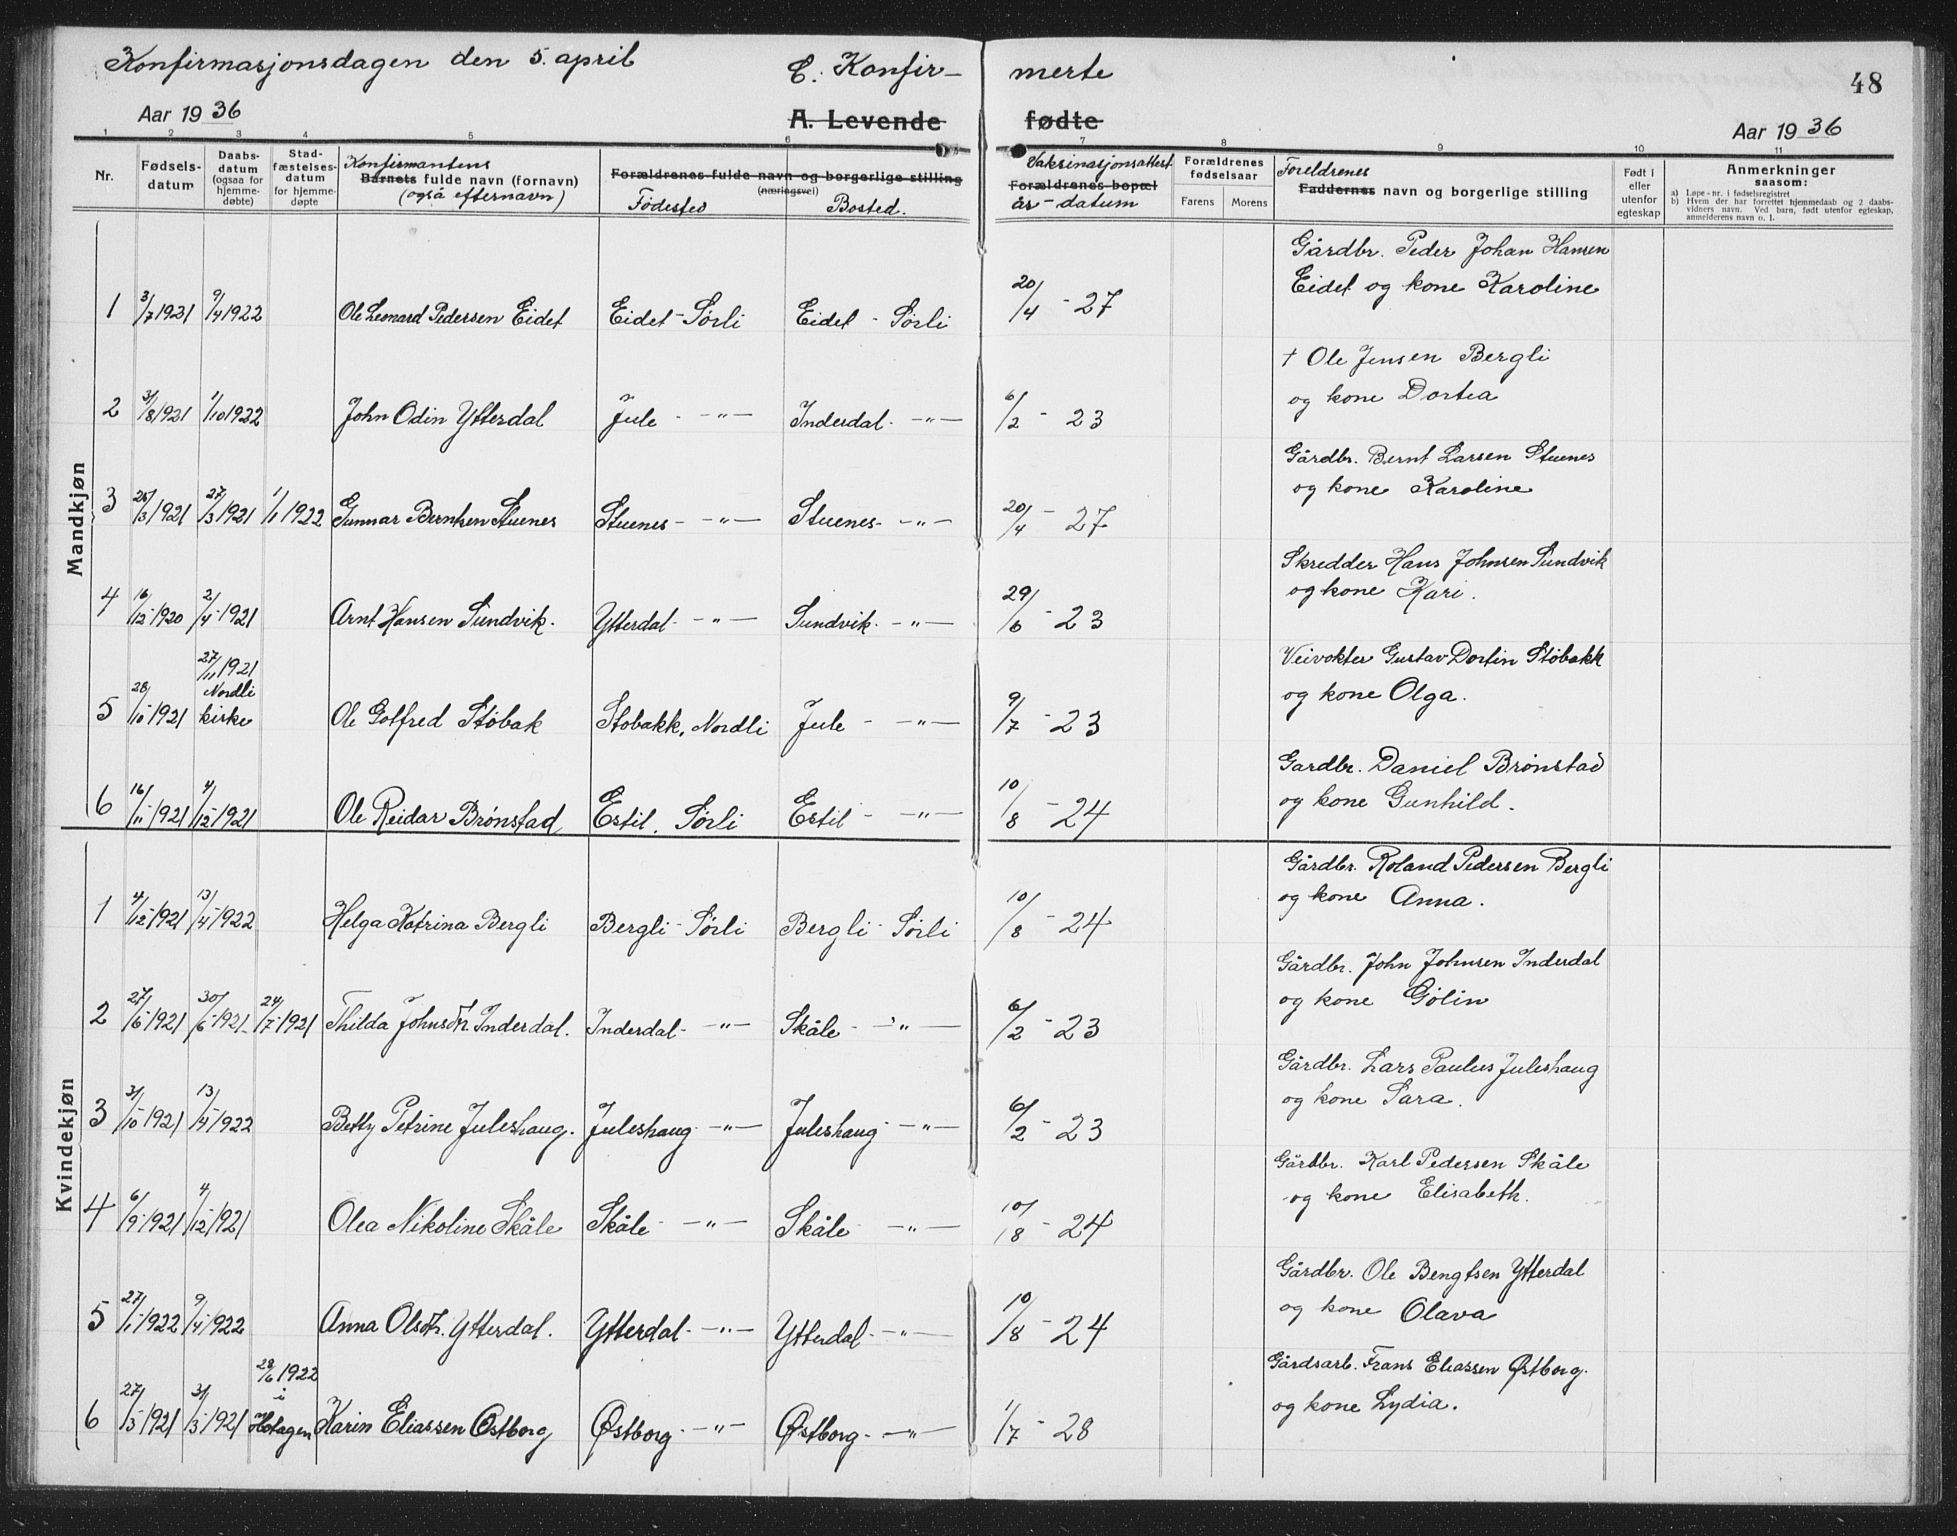 Konfirmasjonsdagen den 5. april C. Konfir- merte 48
Aar 1936 A. Levende fødte Aar 1936
1 2 3 4 5 6 7 8 9 10 11
Nr.
Fødsels-
datum
Daabs-
datum
(ogsaa for
hjemme-
døbte)
Stad-
fæstelses-
datum
for hjemme-
døpte
Konfirmantens
Barnets fulde navn (fornavn)
(også efternavn)
Forældrenes fulde navn og borgerlige stilling
(næringsvei)
Fødested Bosted.
Vaksinasjonsattest
Forældrenes bopæl
år - datum
Forældrenes
fødselsaar
Farens Morens
Foreldrenes
Faddernes navn og borgerlige stilling
Født i
eller
utenfor
egteskap
Anmerkninger
saasom:
a) Løpe-nr. i fødselsregistret
b) Hvem der har forrettet hjemmedaab og 2 daabs-
vidners navn. Ved barn, født utenfor egteskap,
anmelderens navn o. l.
Mandkjøn
Gårdbr. Peder Johan Hansen
Eidet og kone Karoline
1 3/7 1921 9/4 1922 Ole Leonard Pedersen Eidet Eidet - Sørli Eidet - Sørli 20/4 - 27
† Ole Jensen Bergli
og kone Dortea
2 31/8 1921 1/10 1922 John Odin Ytterdal Jule - -"- Inderdal - -"- 6/2 - 23
Gårdbr. Bernt Larsen Stuenes
og kone Karoline
3 25/3 1921 27/3 1921 1/1 1922 Gunnar Berntsen Stuenes Stuenes - -"- Stuenes - -"- 20/4 - 27
Skredder Hans Johnsen Sundvik
og kone Kari.
4 16/12 1920 2/4 1921 Arnt Hansen Sundvik. Ytterdal - -"- Sundvik - -"- 29/6 - 23
Veivokter Gustav Dortin Støbakk
og kone Olga.
27/11 1921
Nordli
kirke
5 28/10 1921 Ole Golfred Støbak Støbakk, Nordli Jule - -"- 9/7 - 23
Gardbr. Daniel Brønstad
og kone Gunhild.
6 16/11 1921 4/12 1921 Ole Reidar Brønstad Estil. Sørli Estil - -"- 10/8 - 24
Kvindekjøn
Gårdbr. Roland Pedersen Bergli
og kone Anna.
1 4/12 1921 13/4 1922 Helga Katrina Bergli Bergli - Sørli Bergli - Sørli 10/8 - 24
Gårdbr. John Johnsen Inderdal
og kone Gølin
2 27/6 1921 30/6 1921 24/7 1921 Thilda Johnsdtr. Inderdal. Inderdal - -"- Skåle - -"- 6/2 - 23
Gårdbr. Lars Paulus Juleshaug
og kone Sara.
3 31/10 1921 13/4 1922 Betty Petrine Juleshaug. Juleshaug - -"- Juleshaug - -"- 6/2 - 23
Gårdbr. Karl Pedersen Skåle
og kone Elisabeth.
4 6/9 1921 4/12 1921 Olea Nikoline Skåle Skåle - -"- Skåle - -"- 10/8 - 24
Gårdbr. Ole Bengtsen Ytterdal
og kone Olava
5 27/1 1922 9/4 1922 Anna Olsdtr. Ytterdal. Ytterdal - -"- Ytterdal - -"- 10/8 - 24
Gårdsarb. Frans Eliassen Østborg.
og kone Lydia.
28/6 1922
i
Hotagen
6 27/3 1921 31/3 1921 Karin Eliassen Østborg Østborg - -"- Østborg - -"- 1/7 - 28